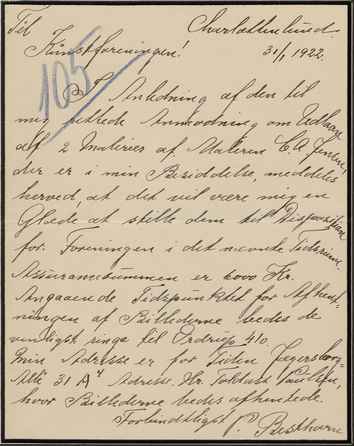 Til Charlottenlund
Kunstforeningen! 31/1 1922.
105
I Anledning af den til
mig rettede Anmodning om Udlaan
af 2 Malerier af Maleren C. A. Jensen,
der er i min Besiddelse, meddeles
herved, at det vil være mig en
Glæde at stille dem til Disposition
for Foreningen i det nævnte Tidsrum.
Assurancesummen er 6000 Kr.
Angaaende Tidspunktet for Afhent-
ningen af Billederne bedes de
venligst ringe til Ordrup 410.
Min Adresse er for Tiden Jægersborg-
Alle 31 A Adresse Hr.
hvor Billederne bedes afhentede.
Forbindtligst